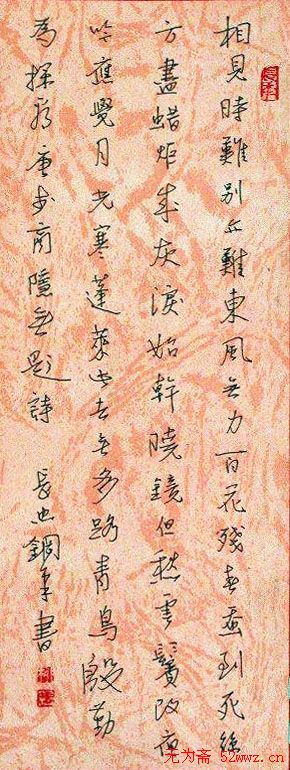 相見時難別亦難東風无力百花残春蚕到死絲
方盡蜡炬成灰淚始幹曉鏡但愁雲鬢改夜
吟應覺月光寒蓬萊此去无多路青鳥殷勤
為探看唐李商隱无題詩 鋼筆書
无为斋 52wwz.cn